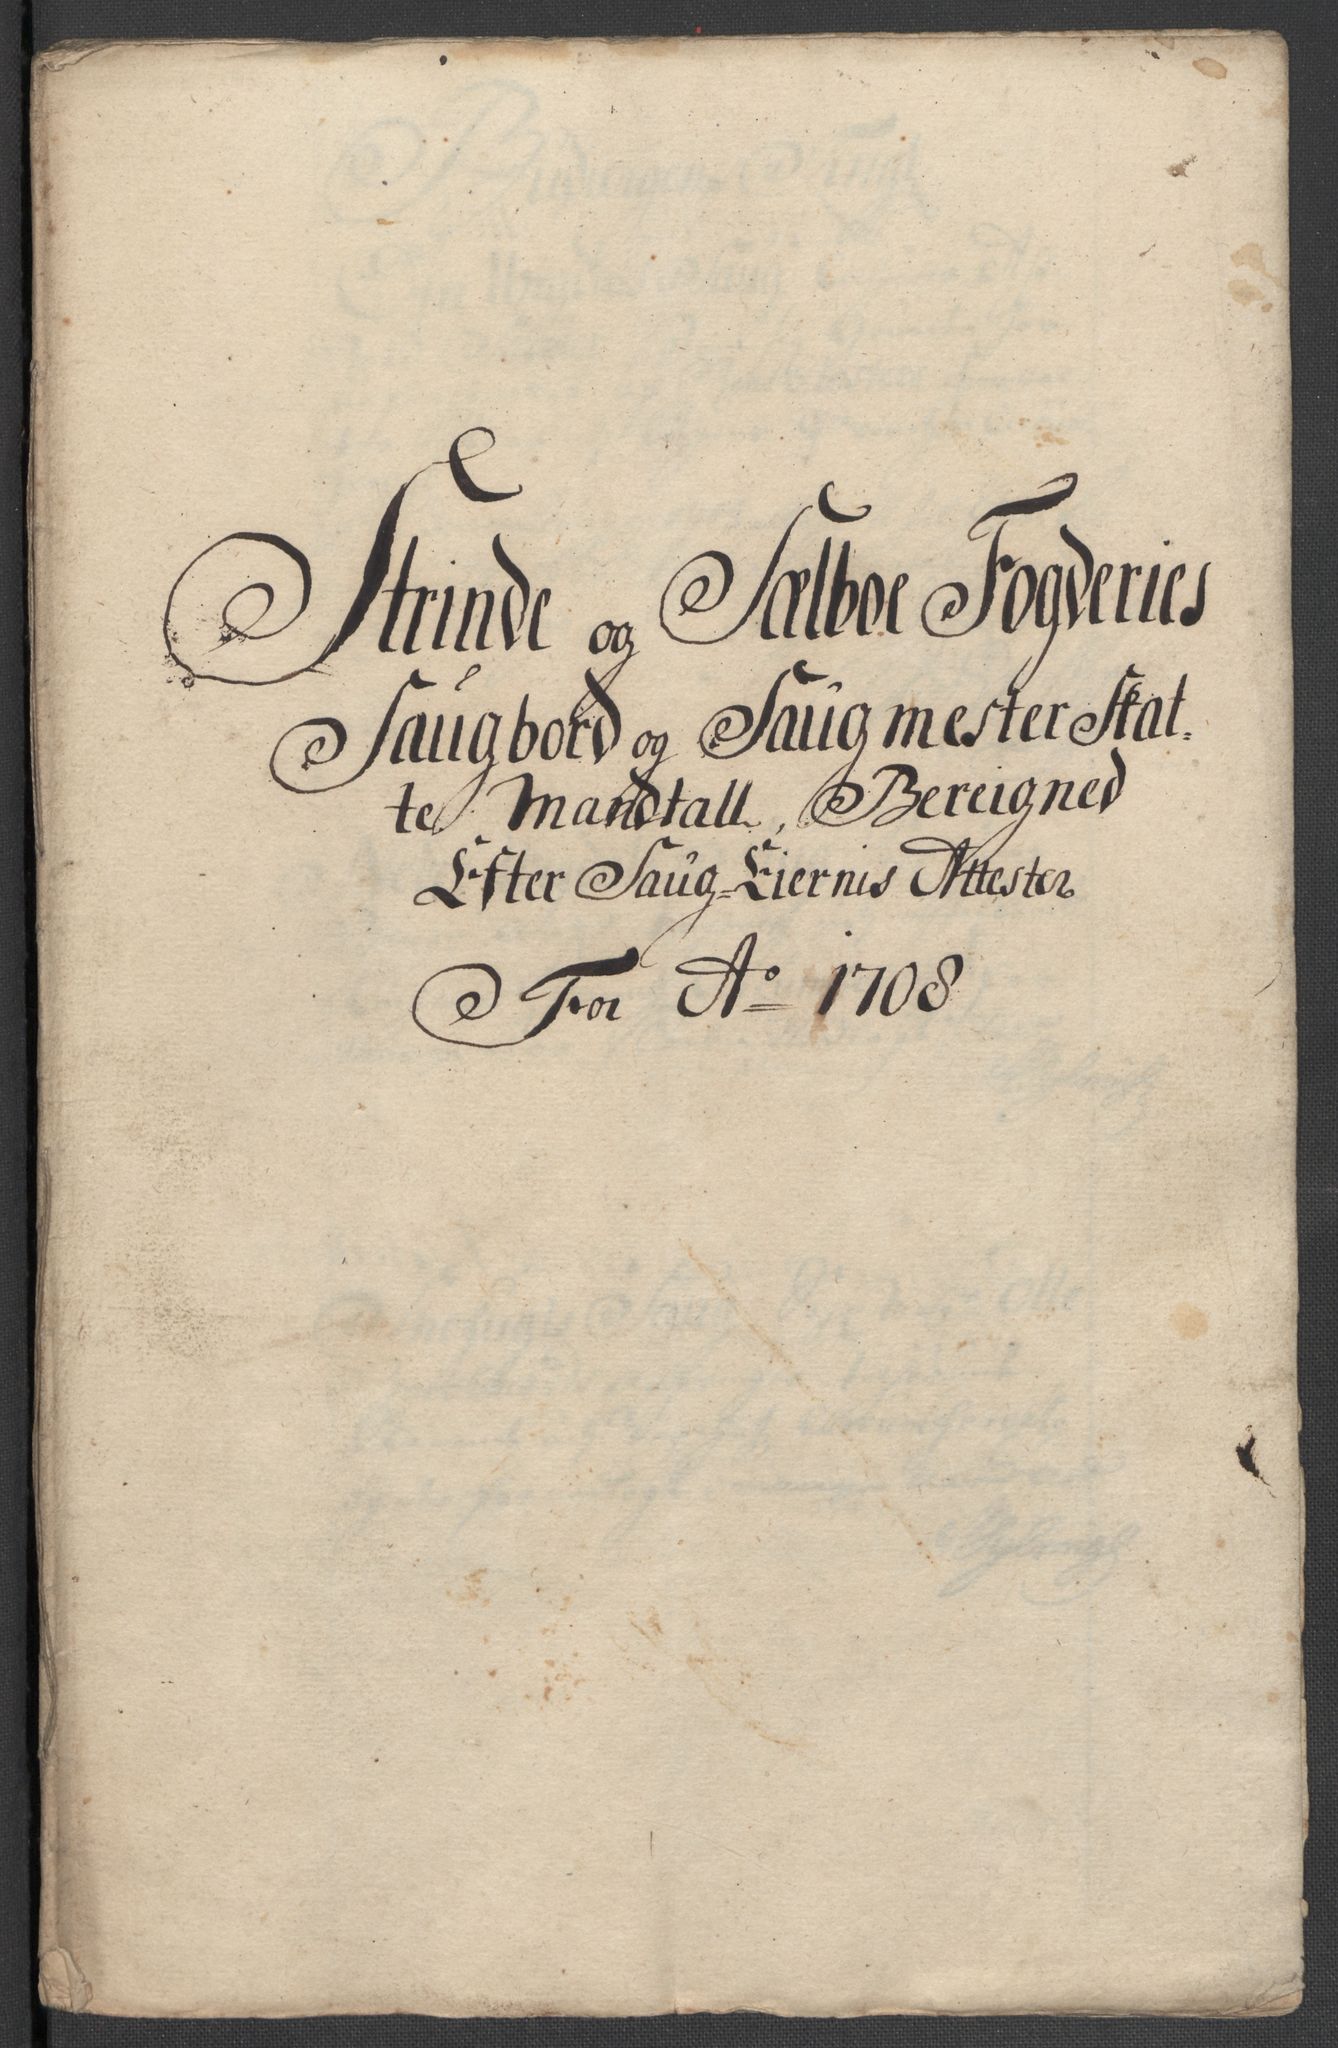 Strinde og Sælboe Fogderies
Saugbord og Saugmester Skat-
te Mandtall, Bereigned
Efter Saug-Eiernis Attester
For Ao 1708